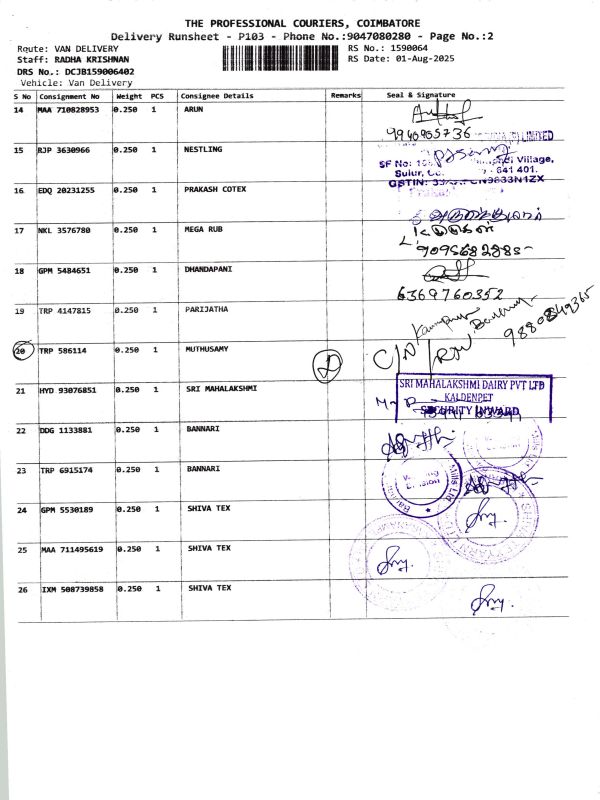 THE PROFESSIONAL COURIERS, COIMBATORE
Delivery Runsheet - P103 - Phone No.:9047080280 - Page No.:2
Route: VAN DELIVERY RS No.: 1590064
Staff: RADHA KRISHNAN RS Date: 01-Aug-2025
DRS No.: DCJB159006402
Vehicle: Van Delivery
S No Consignment No Weight PCS Consignee Details Remarks Seal & Signature
14 MAA 710828953 0.250 1 ARUN
9940905736 LIMITED
15 RJP 3630966 0.250 1 NESTLING
SF No: Village,
Sulur, 641 401.
GSTIN:
16 EDQ 20231255 0.250 1 PRAKASH COTEX
17 NKL 3576780 0.250 1 MEGA RUB
9095682885
18 GPM 5484651 0.250 1 DHANDAPANI
6369760352
19 TRP 4147815 0.250 1 PARIJATHA
9880849365
20 TRP 586114 0.250 1 MUTHUSAMY
21 HYD 93076851 0.250 1 SRI MAHALAKSHMI
SRI MAHALAKSHMI DAIRY PVT LTD
KALDENPET
SECURITY INWARD
22 DDG 1133881 0.250 1 BANNARI
23 TRP 6915174 0.250 1 BANNARI
24 GPM 5530189 0.250 1 SHIVA TEX
25 MAA 711495619 0.250 1 SHIVA TEX
26 IXM 508739858 0.250 1 SHIVA TEX